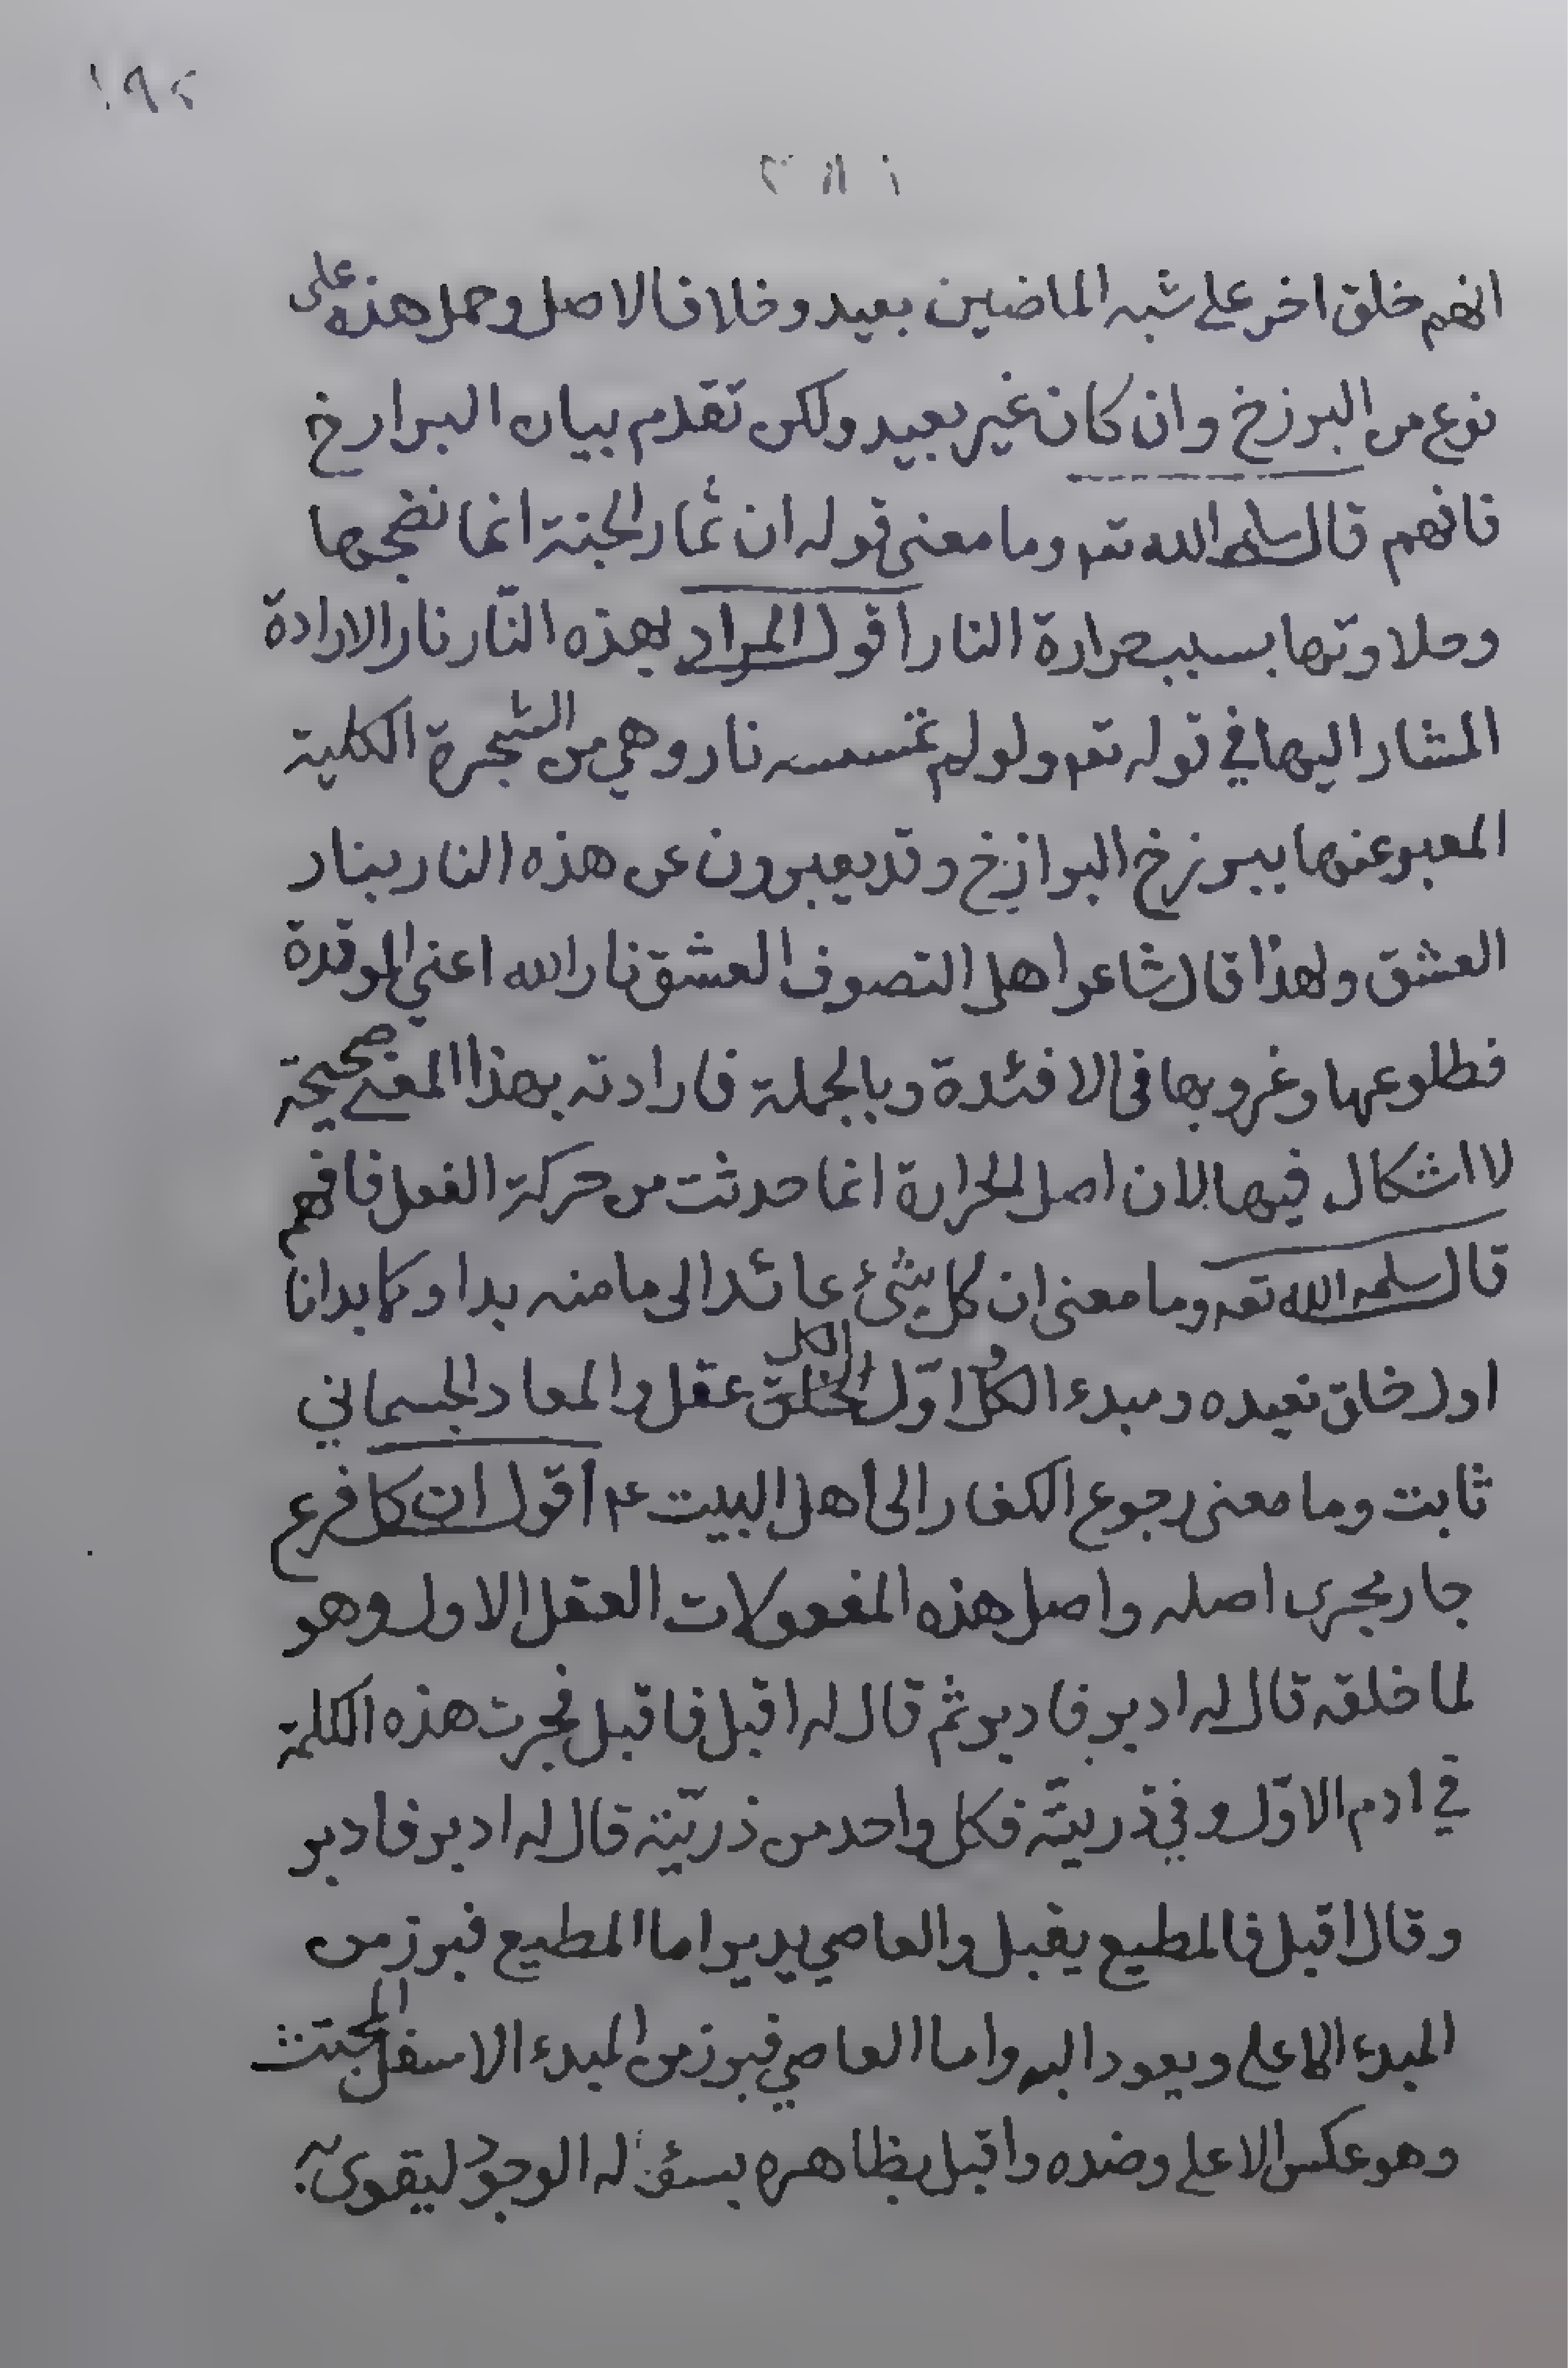 انهم خلق اخر على شبه الماضين بعيد وخلاف الاصل وحمل هذه على
نوع من البرزخ وان كان غير بعيد ولكن تقدم بيان البرازخ
فافهم قال سلمه الله تعه وما معنى قوله ان ثمار الجنة انما نضجها
وحلاوتها بسبب حرارة النار اقول المراد بهذه النّار نار الارادة
المشار اليها في قوله تعه ولو لم تمسسه نار وهي من الشجرة الكلية
المعبر عنها ببرزخ البرازخ وقد يعبرون عن هذه النار بنار
العشق ولهذا قال شاعر اهل التصوف العشق نار الله اعني الموقدة
فطلوعها وغروبها في الافئدة وبالجملة فارادته بهذا المعنى صحيحة
لا اشكال فيها لان اصل الحرارة انما حدثت من حركة الفعل فافهم
قال سلمه الله تعه وما معنى ان كل شئ عائد الى ما منه بدا وكما بدانا
اول خلق نعيده ومبدء الكل واوّل الخلق الكل عقل والمعاد الجسماني
ثابت وما معنى رجوع الكفار الى اهل البيت ع۴ اقول ان كل فرع
جار مجرى اصله واصل هذه المفعولات العقل الاول وهو
لما خلقه قال له ادبر فادبر ثم قال له اقبل فاقبل فجرت هذه الكلمة
في ادم الاوّل وفي ذريتّه فكل واحد من ذريّته قال له ادبر فادبر
وقال اقبل فالمطيع يقبل والعاصي يدبر اما المطيع فبرز من
المبدء الاعلى ويعود اليه واما العاصي فبرز من المبدء الاسفل المجتث
وهو عكس الاعلى وضده واقبل بظاهره بسؤاله الوجود ليقوى به